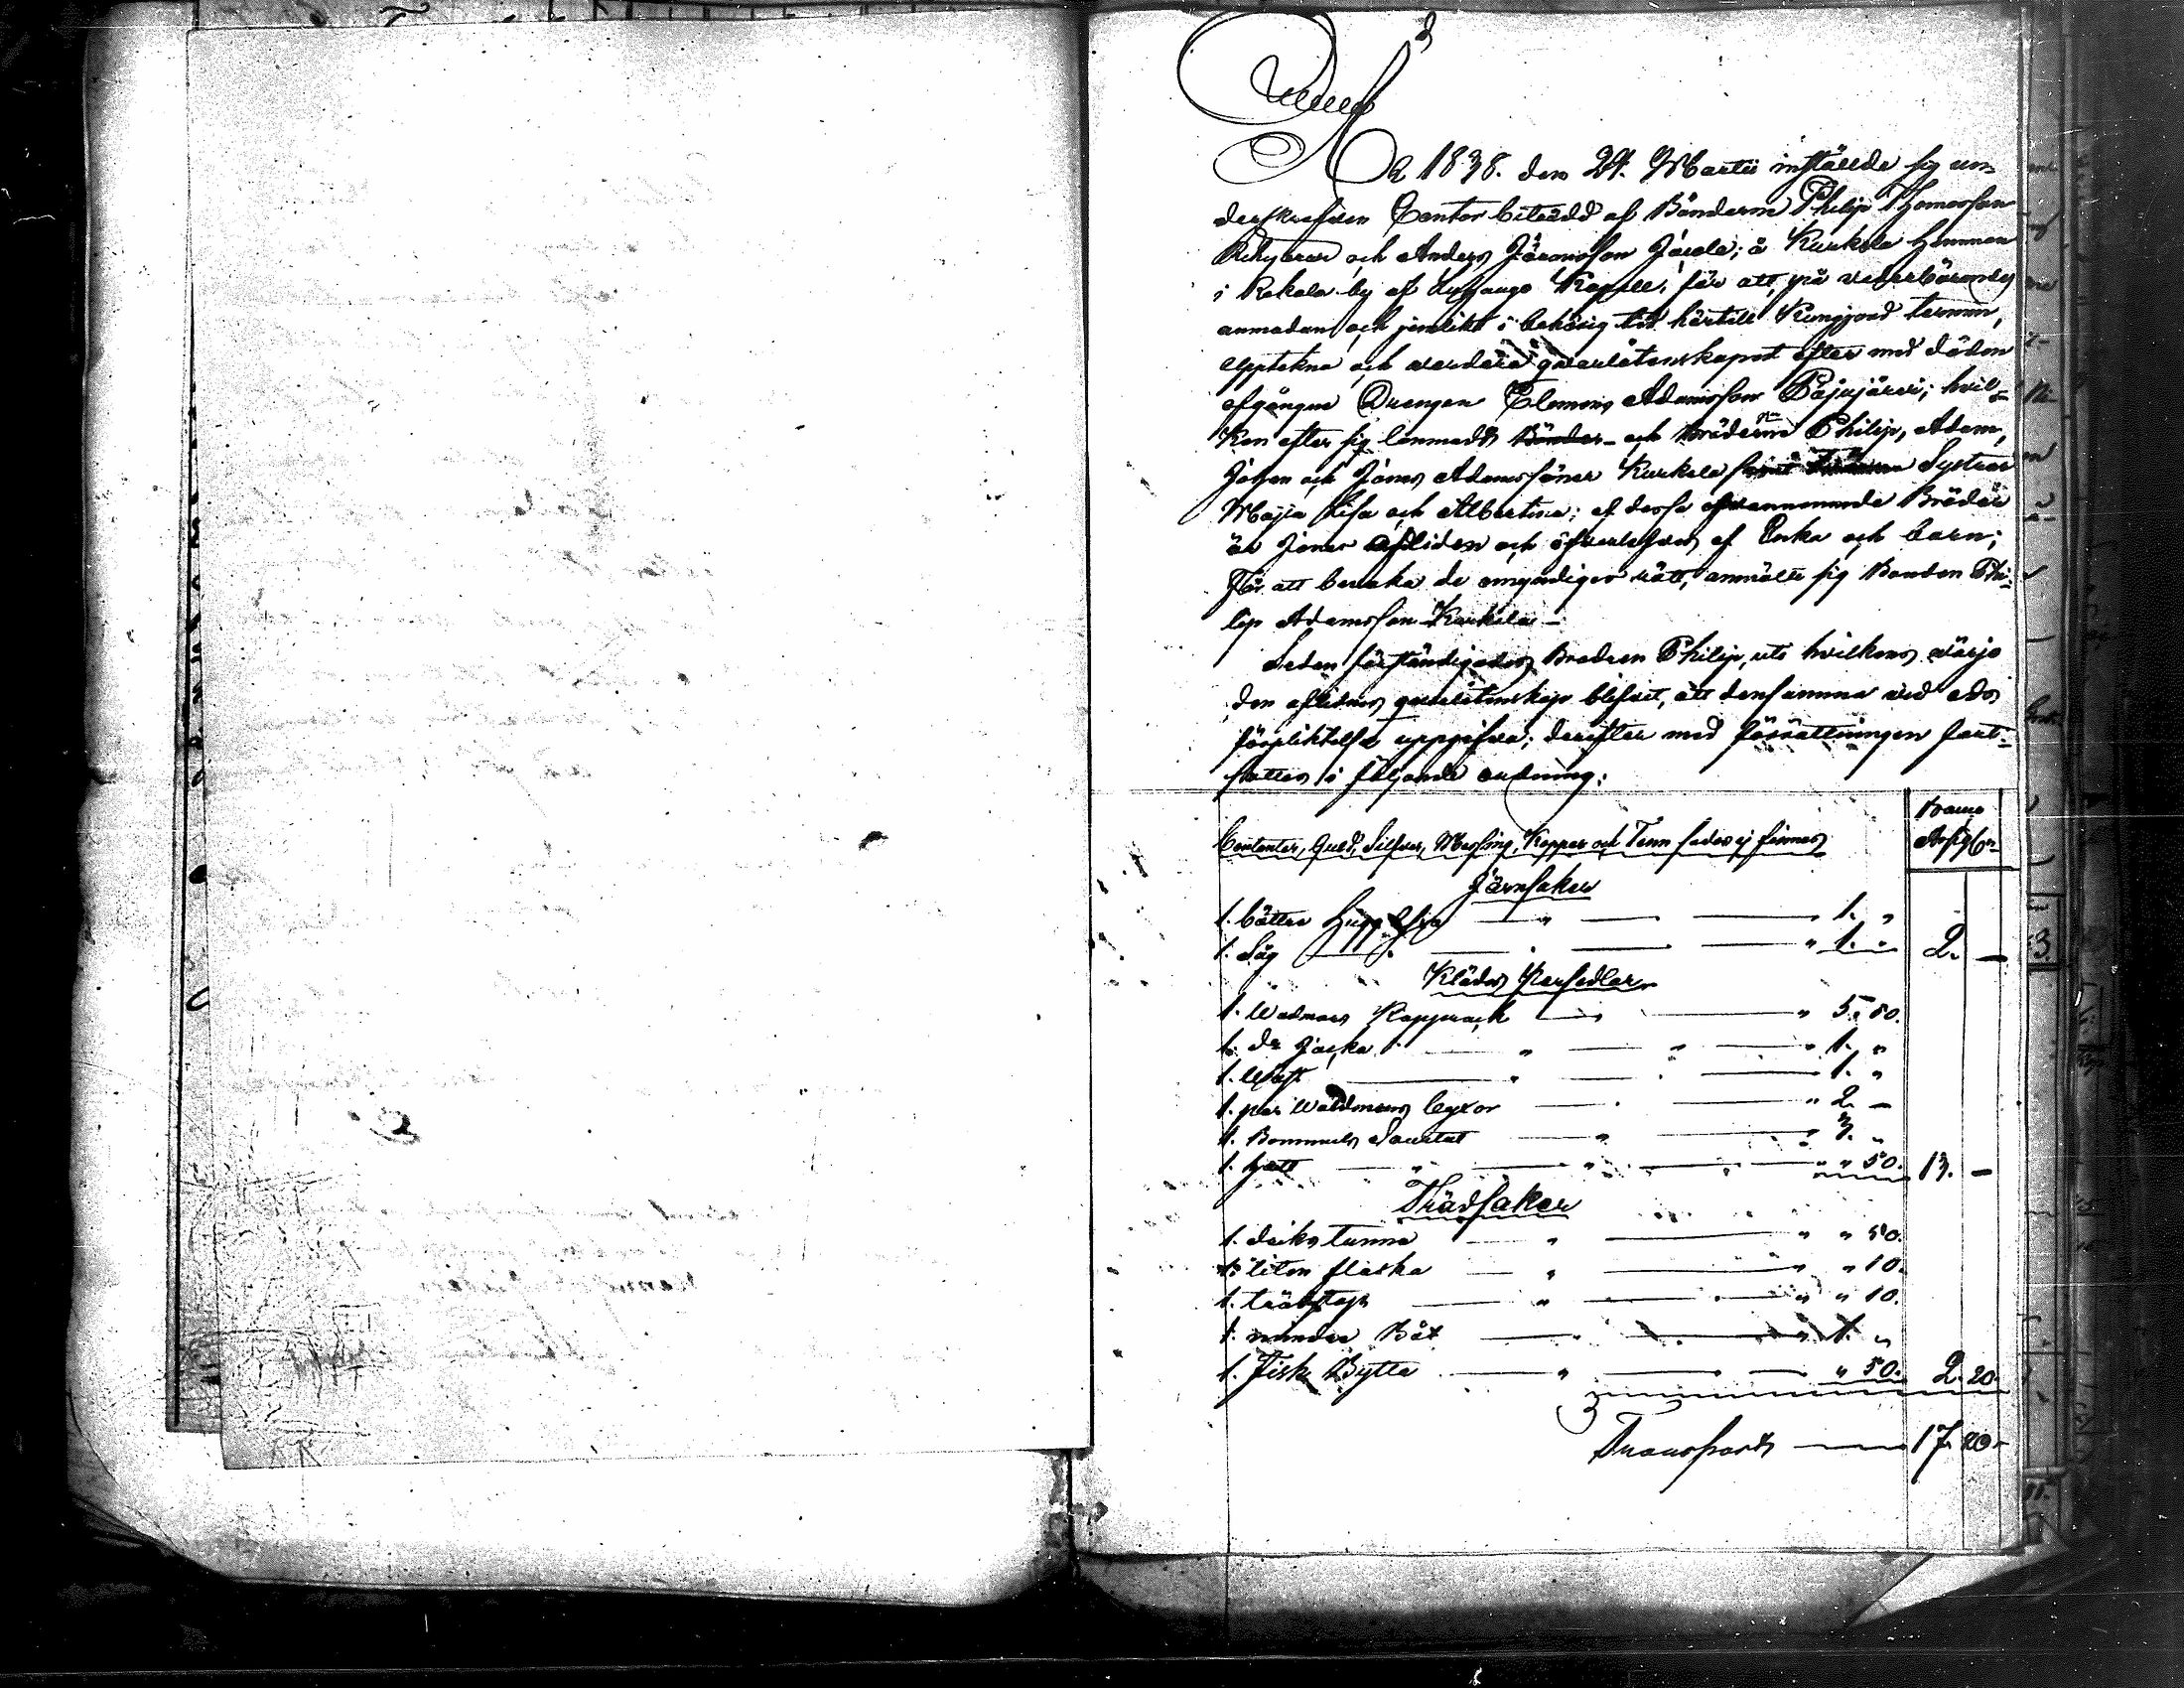 År 1838. den 24. Martii inställde sig un-
derskrefven Cantor biträdd af Bönderne Philip Thomasson
och Anders Jöransson Järele; å Kurkela Hemman
i Kakola by af Kapell, för att, på vederbörandes
anmodan, och jemlikt i behörig tid härtill Kungjord termin,
upptekna och verdera qvarlåtenskapet efter med döden
afgångne Drengen Clemens Adamsson Pajujärvi; hvil-
ken efter sig lemnadt Bönder- och Bröderne Philip, Adam,
Johan och Jonas Adamssöner Kurkela samt Systrar
Maja Lisa och Albertina; af dessa ofvannemnde Bröder
är Jonas afliden och öfverlefves af Enka och barn;
För att bevaka de omyndigas rätt, anmälte sig Bonden Phi-
lip Adamsson Kurkela.
Sedan förständigades Brodren Philip, uti hvilkens värjo
den aflidnes qvarlåtenskap blifvit, att densamma vid eds
förpliktelse uppgifva; derefter med förrättningen fort-
sattes i följande ordning:
Banco
Contanter, Guld, Silfver, Messing, Koppar och Tenn saker ej finnes Assig:
Järnsaker
1. bättre Hugg Yxa " 1. "
1. Såg " 1. " 2. —
Klädes Persedlar
1. Wadmars Kapprock " 5. 50.
1. Do Jacka " 1. "
1. Wäst " 1. "
1. par Waldmars byxor " 2. —
1. Bommuls " 3. "
1. Hatt " " 50. 13. —
Trädsaker
1. Dricks tunna " " 50.
1. liten flaska " " 10.
1. trästop " " 10.
1. mindre Båt " 1. "
1. Fisk Bytta " 50. 2. 20.
Transport 17. 20.